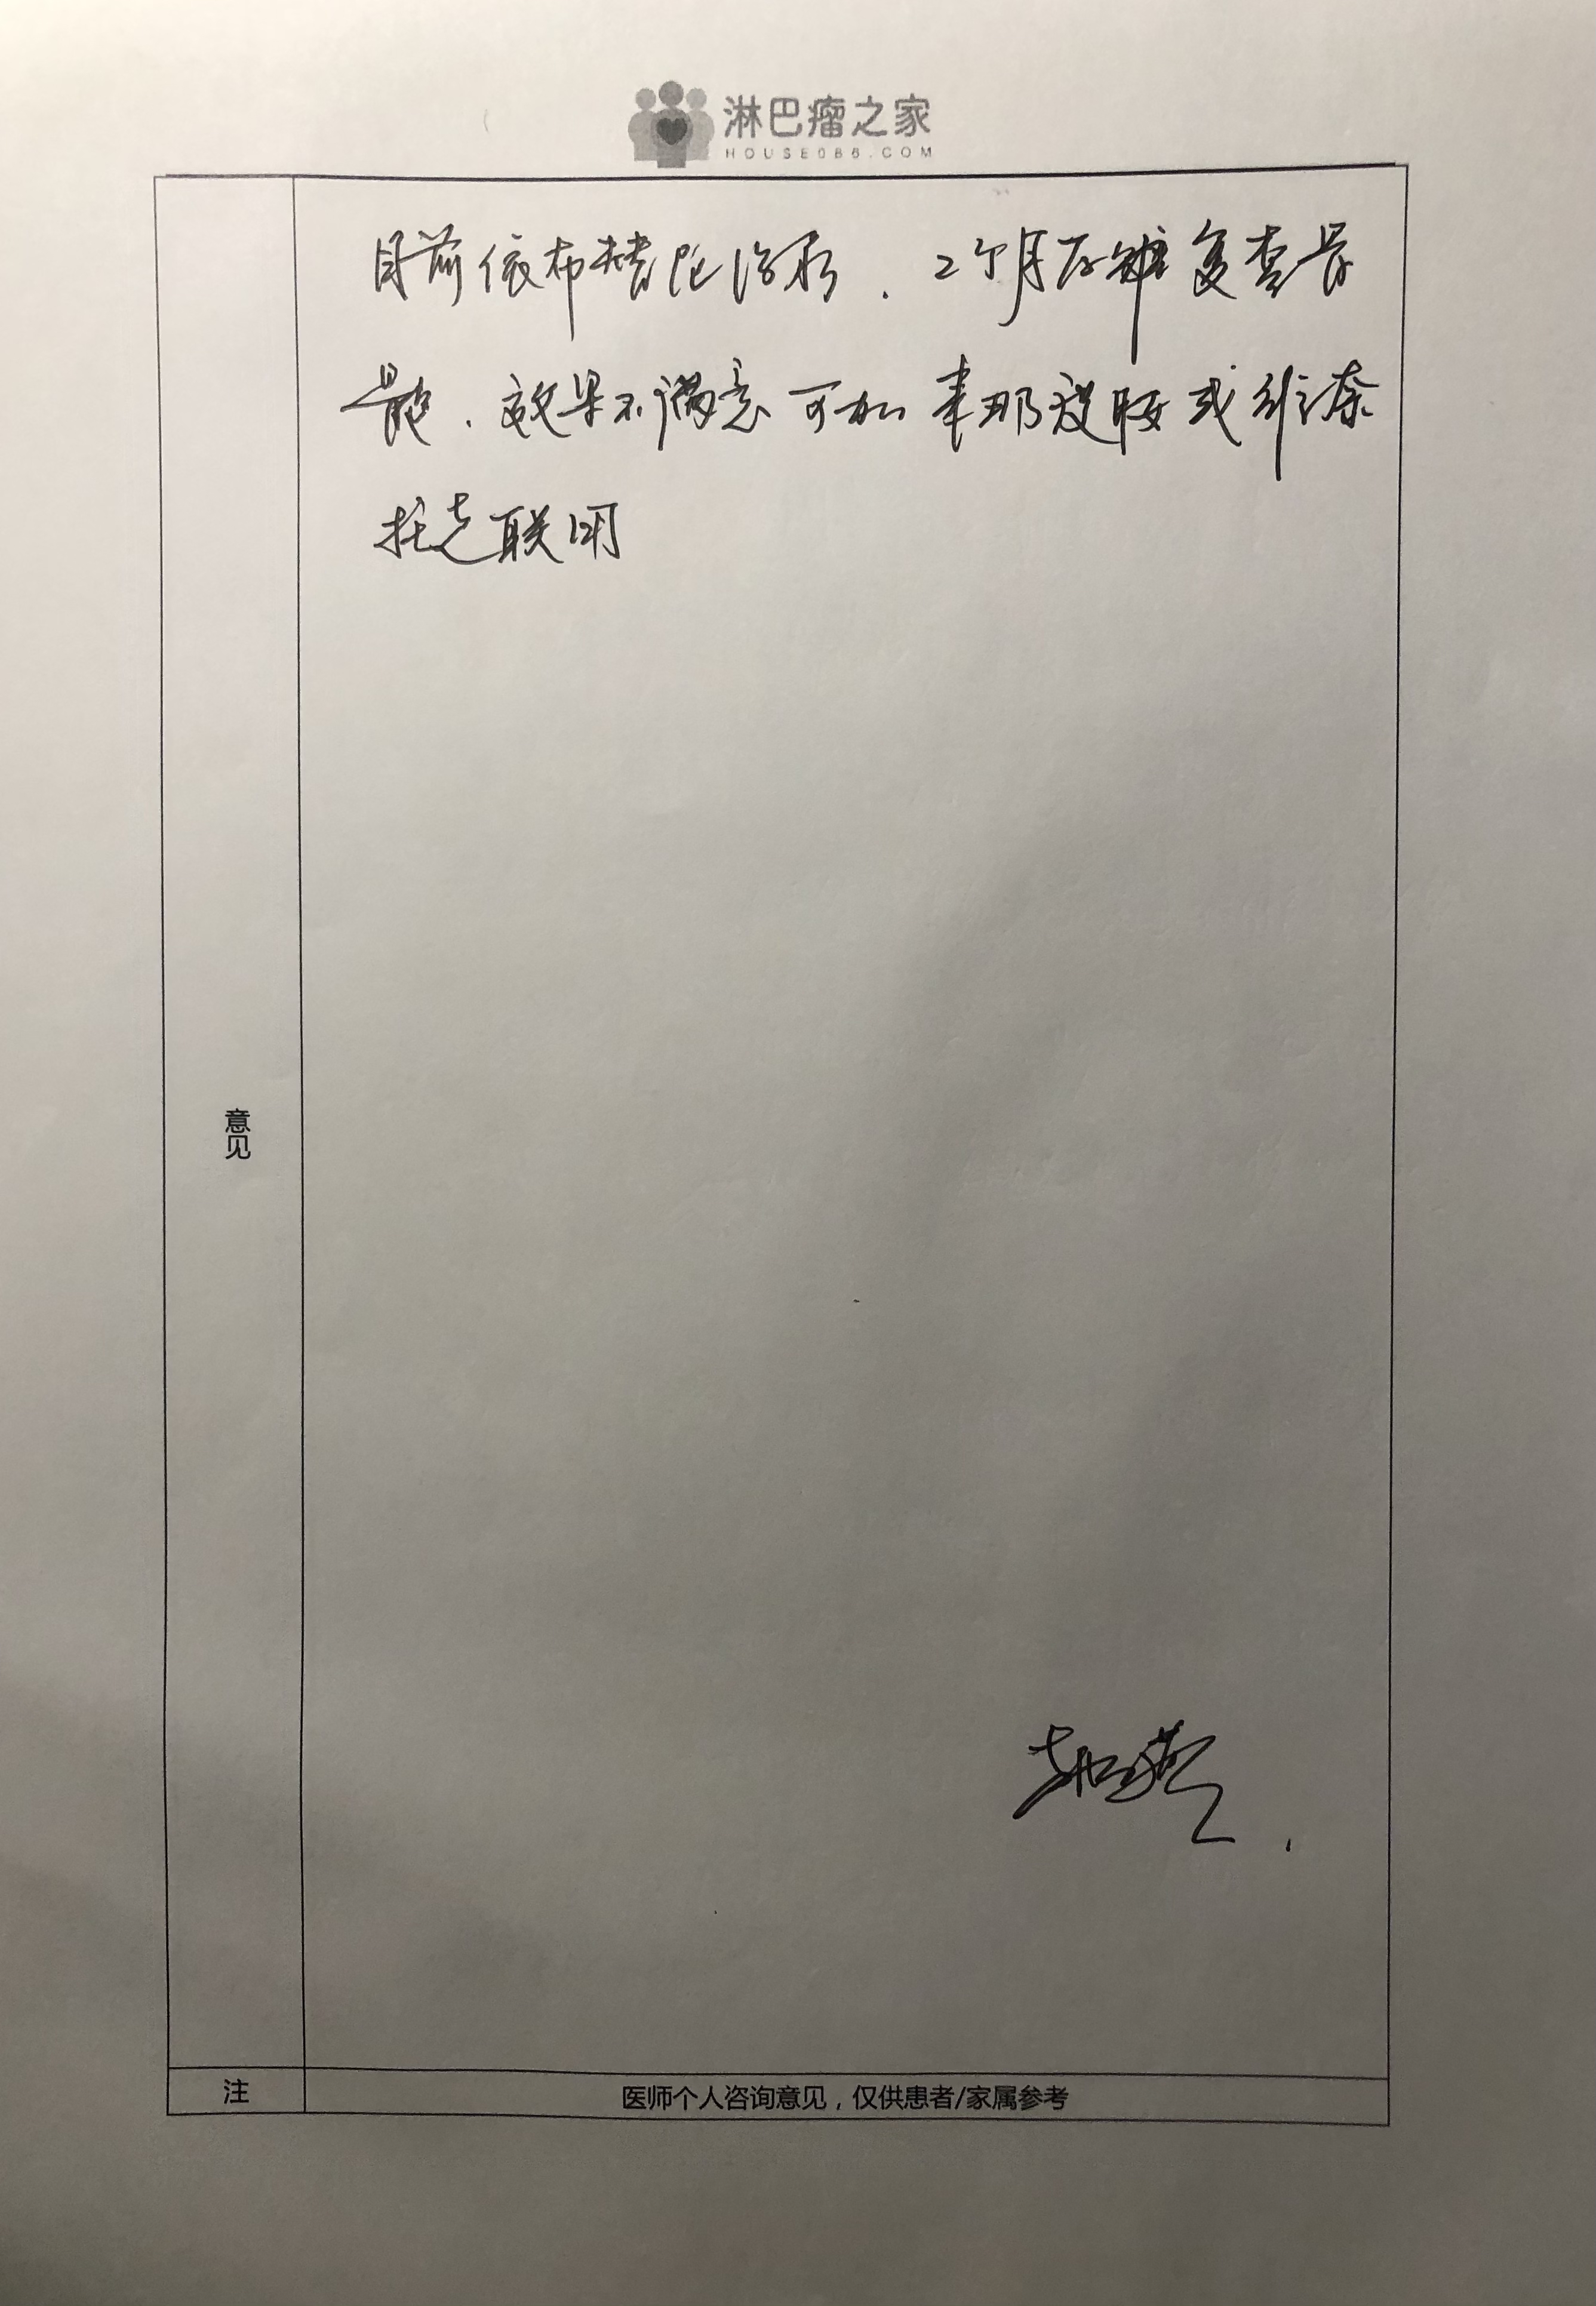 淋巴瘤之家
HOUSE086.COM
目前依布替尼治疗. 2个月后 复查骨
髓. 效果不满意 可加 来那度胺 或 维奈
托克联用
意见
注
医师个人咨询意见，仅供患者/家属参考